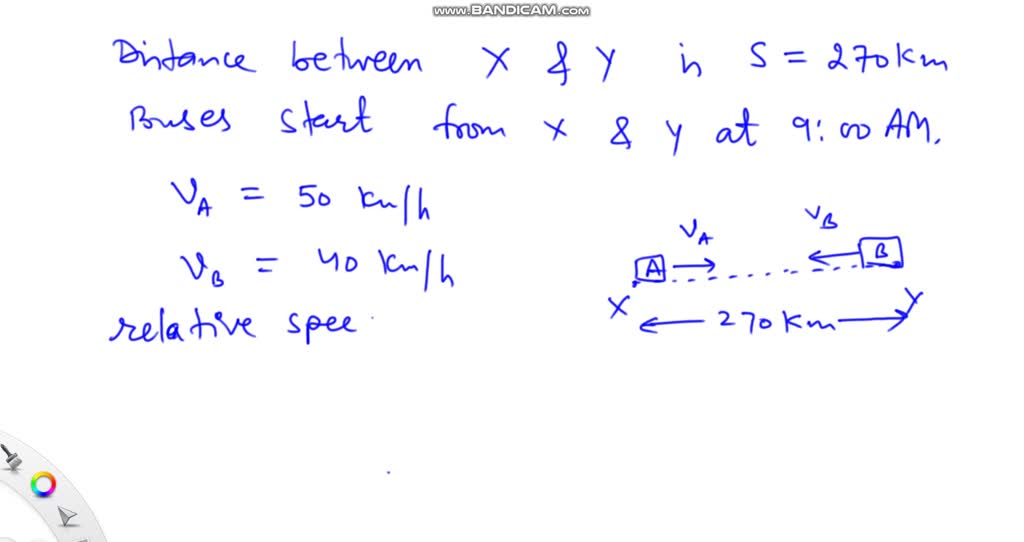 www.BANDICAM.com
Distance between X & Y is S = 270 Km
Buses start from X & Y at 9:00 AM.
V_A = 50 Km/h
V_B = 40 Km/h
relative spee
V_A
V_B
A
B
X
Y
270 Km